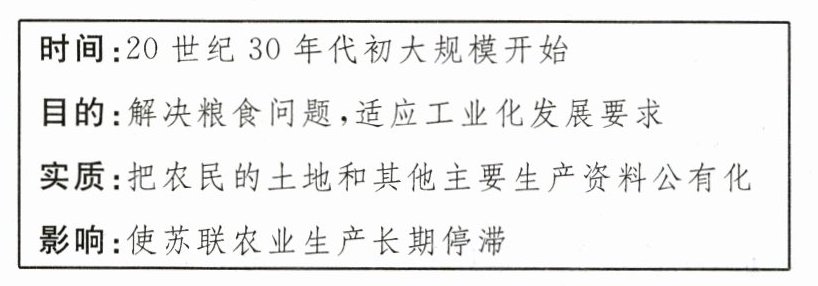 时间:20世纪30年代初大规模开始
目的:解决粮食问题,适应工业化发展要求
实质:把农民的土地和其他主要生产资料公有化
影响:使苏联农业生产长期停滞